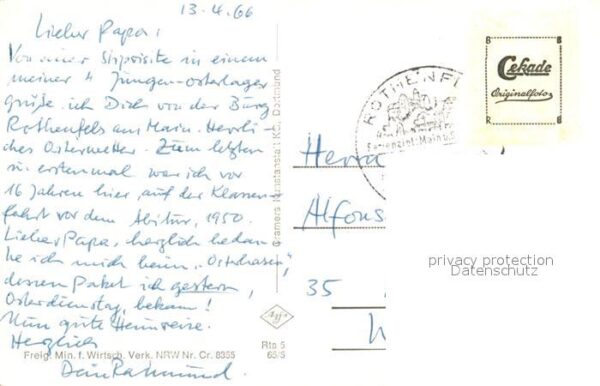 13.4.66
Lieber Papa,
Von einer Stippvisite in einem
meiner 4 Jungen-Osterlager
grüße ich Dich von der Burg
Rothenfels am Main. Herrli-
ches Osterwetter. Zum letzten
u. erstenmal war ich vor
16 Jahren hier, auf der Klassen-
fahrt vor dem Abitur, 1950.
Lieber Papa, herzlich bedan-
ke ich mich beim „Osterhasen",
dessen Paket ich gestern,
Osterdienstag, bekam!
Nun gute Heimreise.
Herzlich
Dein Raimund.
Freig. Min. f. Wirtsch. Verk. NRW Nr. Cr. 8355
Cramers Kunstanstalt KG, Dortmund
Agfa
Rtn 5
65/S
ROTHENF
Cekade
Originalfoto
Herrn
Alfons
35
privacy protection
Datenschutz